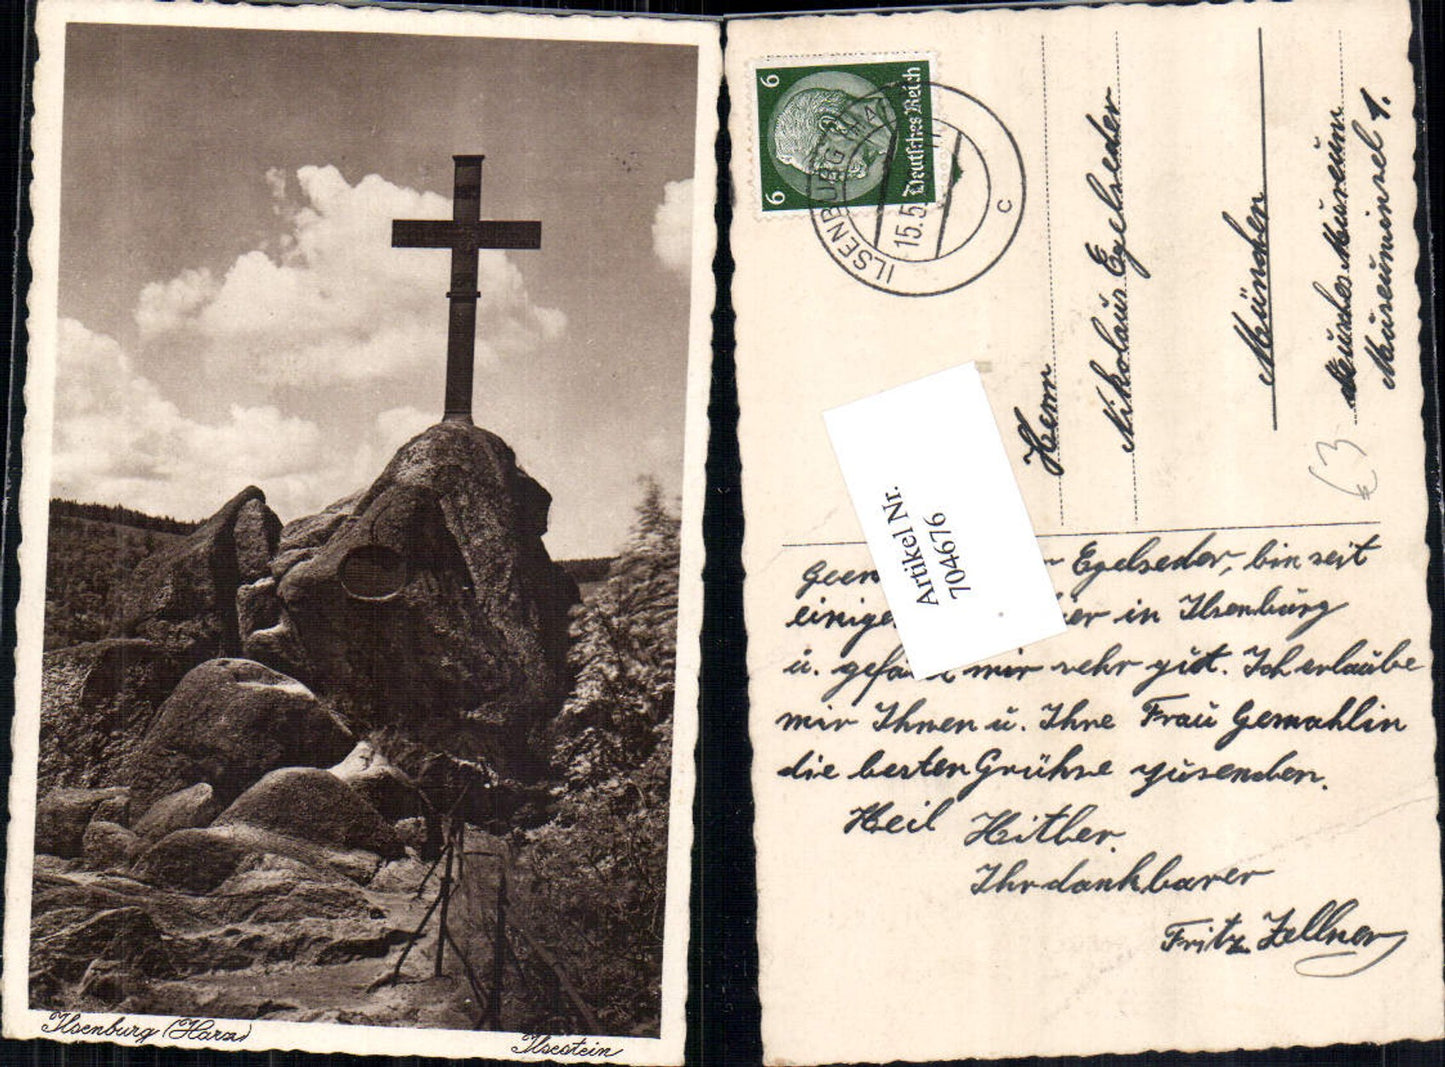 Ilsenburg (Harz)
Ilsestein
6
6
Deutsches Reich
ILSENBURG
15.5
c
Herrn
Nikolaus Egelseder
München
Deutsches Museum
Museumsinsel 1.
€3
Artikel Nr.
704676
Egelseder, bin seit
einige hier in Ilsenburg
u. gefällt mir sehr gut. Ich erlaube
mir Ihnen u. Ihre Frau Gemahlin
die besten Grühse zusenden.
Heil Hitler.
Ihr dankbarer
Fritz Zellner